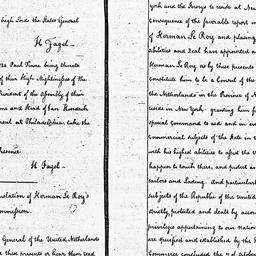 high Lords the States General
H Fagel.
Paul Prime being thereto
of their High Mightinesses of the
President of the Assembly of their
and Hend of Van Hendrick
Consul at Philadelphia, take the
H Fagel.
Translation of Herman Le Roy's
Commission.
General of the United Netherlands
these presents or hear them read
York and the Jerseys to reside at New
Consequence of the favorable report
of Herman Le Roy and placing
abilities and zeal have appointed
Herman Le Roy as by these presents
constitute him to be a Consul of the
the Netherlands in the Province of
reside in New York. granting him
special Command to aid and in
commercial subjects of the State in
with his highest abilities to assist the
happen to touch there, and protect
sailors and Lading. And particularly
subjects of the Republic of the United
strictly protected and dealt by
privilege appertaining to our nation
are specified and established by the
Commerce concluded the 7th of October